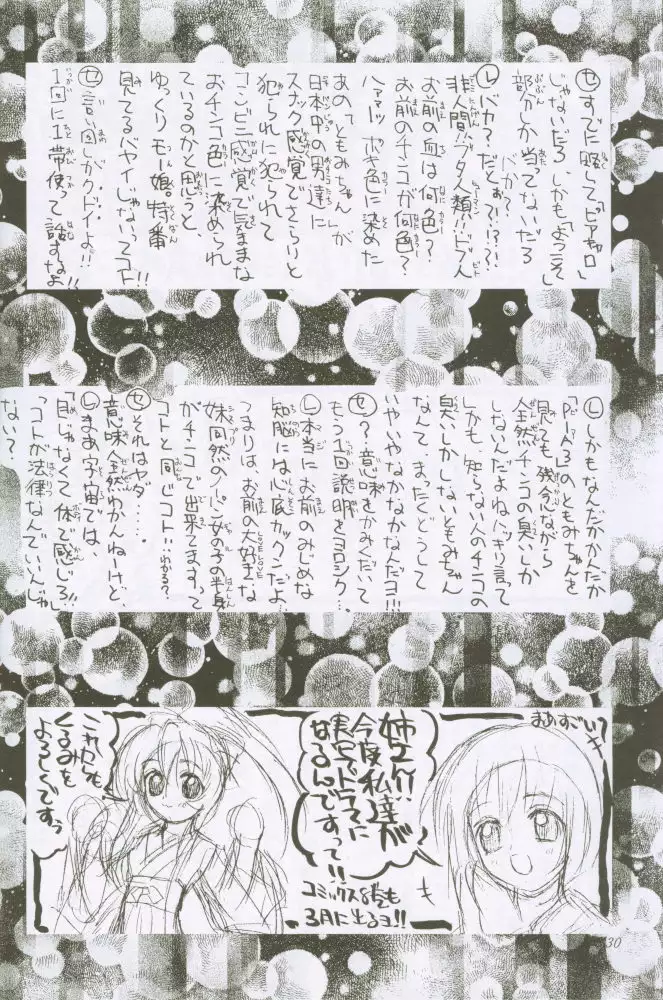 セ すでに略して「ピアキャロ」
じゃないだろ、しかも「ようこそ」
部分しか当ってないだろ
バカ?
レ バカ?だとぉ?!?!?!
お前の血は何色?
お前のチンコが何色?
あの「ともみちゃん」が
日本中の男達に
スナック感覚でさらりと
犯られに犯られて
コンビニ感覚で気ままな
おチンコ色に染められ
ているのかと思うと、
ゆっくりモー娘。特番
見てるバヤイじゃないってコト!!
セ 言い回しがクドイよ!!
1回に1帯使って話すなよ!!
レ しかもなんだかかんだか
ともみちゃんを
見ても残念ながら
全然チンコの臭いしか
しないんだよねハッキリ言って
しかも、知らない人のチンコの
臭いしかしないともみちゃん
なんて、まったくどうして
いやいやなかなかなんだヨ!!!
セ ?意味をかみくだいて
もう1回説明をヨロシク…
レ 本当にお前のみじめな
知能には心底カックンだよ…
つまりは、お前の大好きな
LOVE LOVE
妹同然のノーパン女の子の半身
がチンコで出来てますって
コトと同じコト!!わかる?
セ それはヤダ……
意味全然わかんねーけど、
レ まあ宇宙では、
「目じゃなくて体で感じろ!!」
ってコトが法律なんでいいんじゃ
ない?
まあすごい?
姉さん!!
今度私達が
実写ドラマに
なるんですって!!
コミックス8巻も
3月に出るヨ!!
これからも
くるみを
よろしくですっ
30